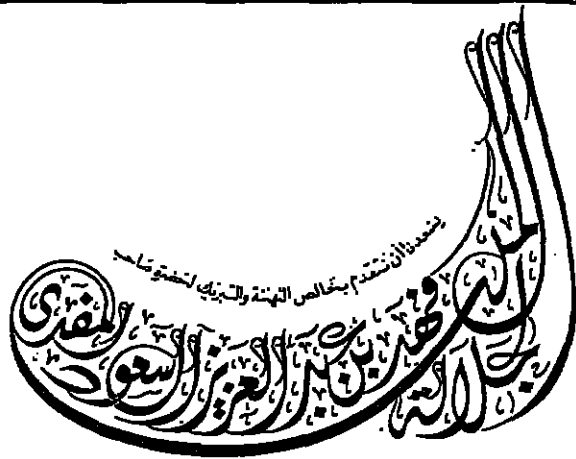 يسعدنا أن نتقدم بخالص التهنئة والتبريك لحضرة صاحب
جلالة الملك فهد بن عبد العزيز آل سعود المفدى